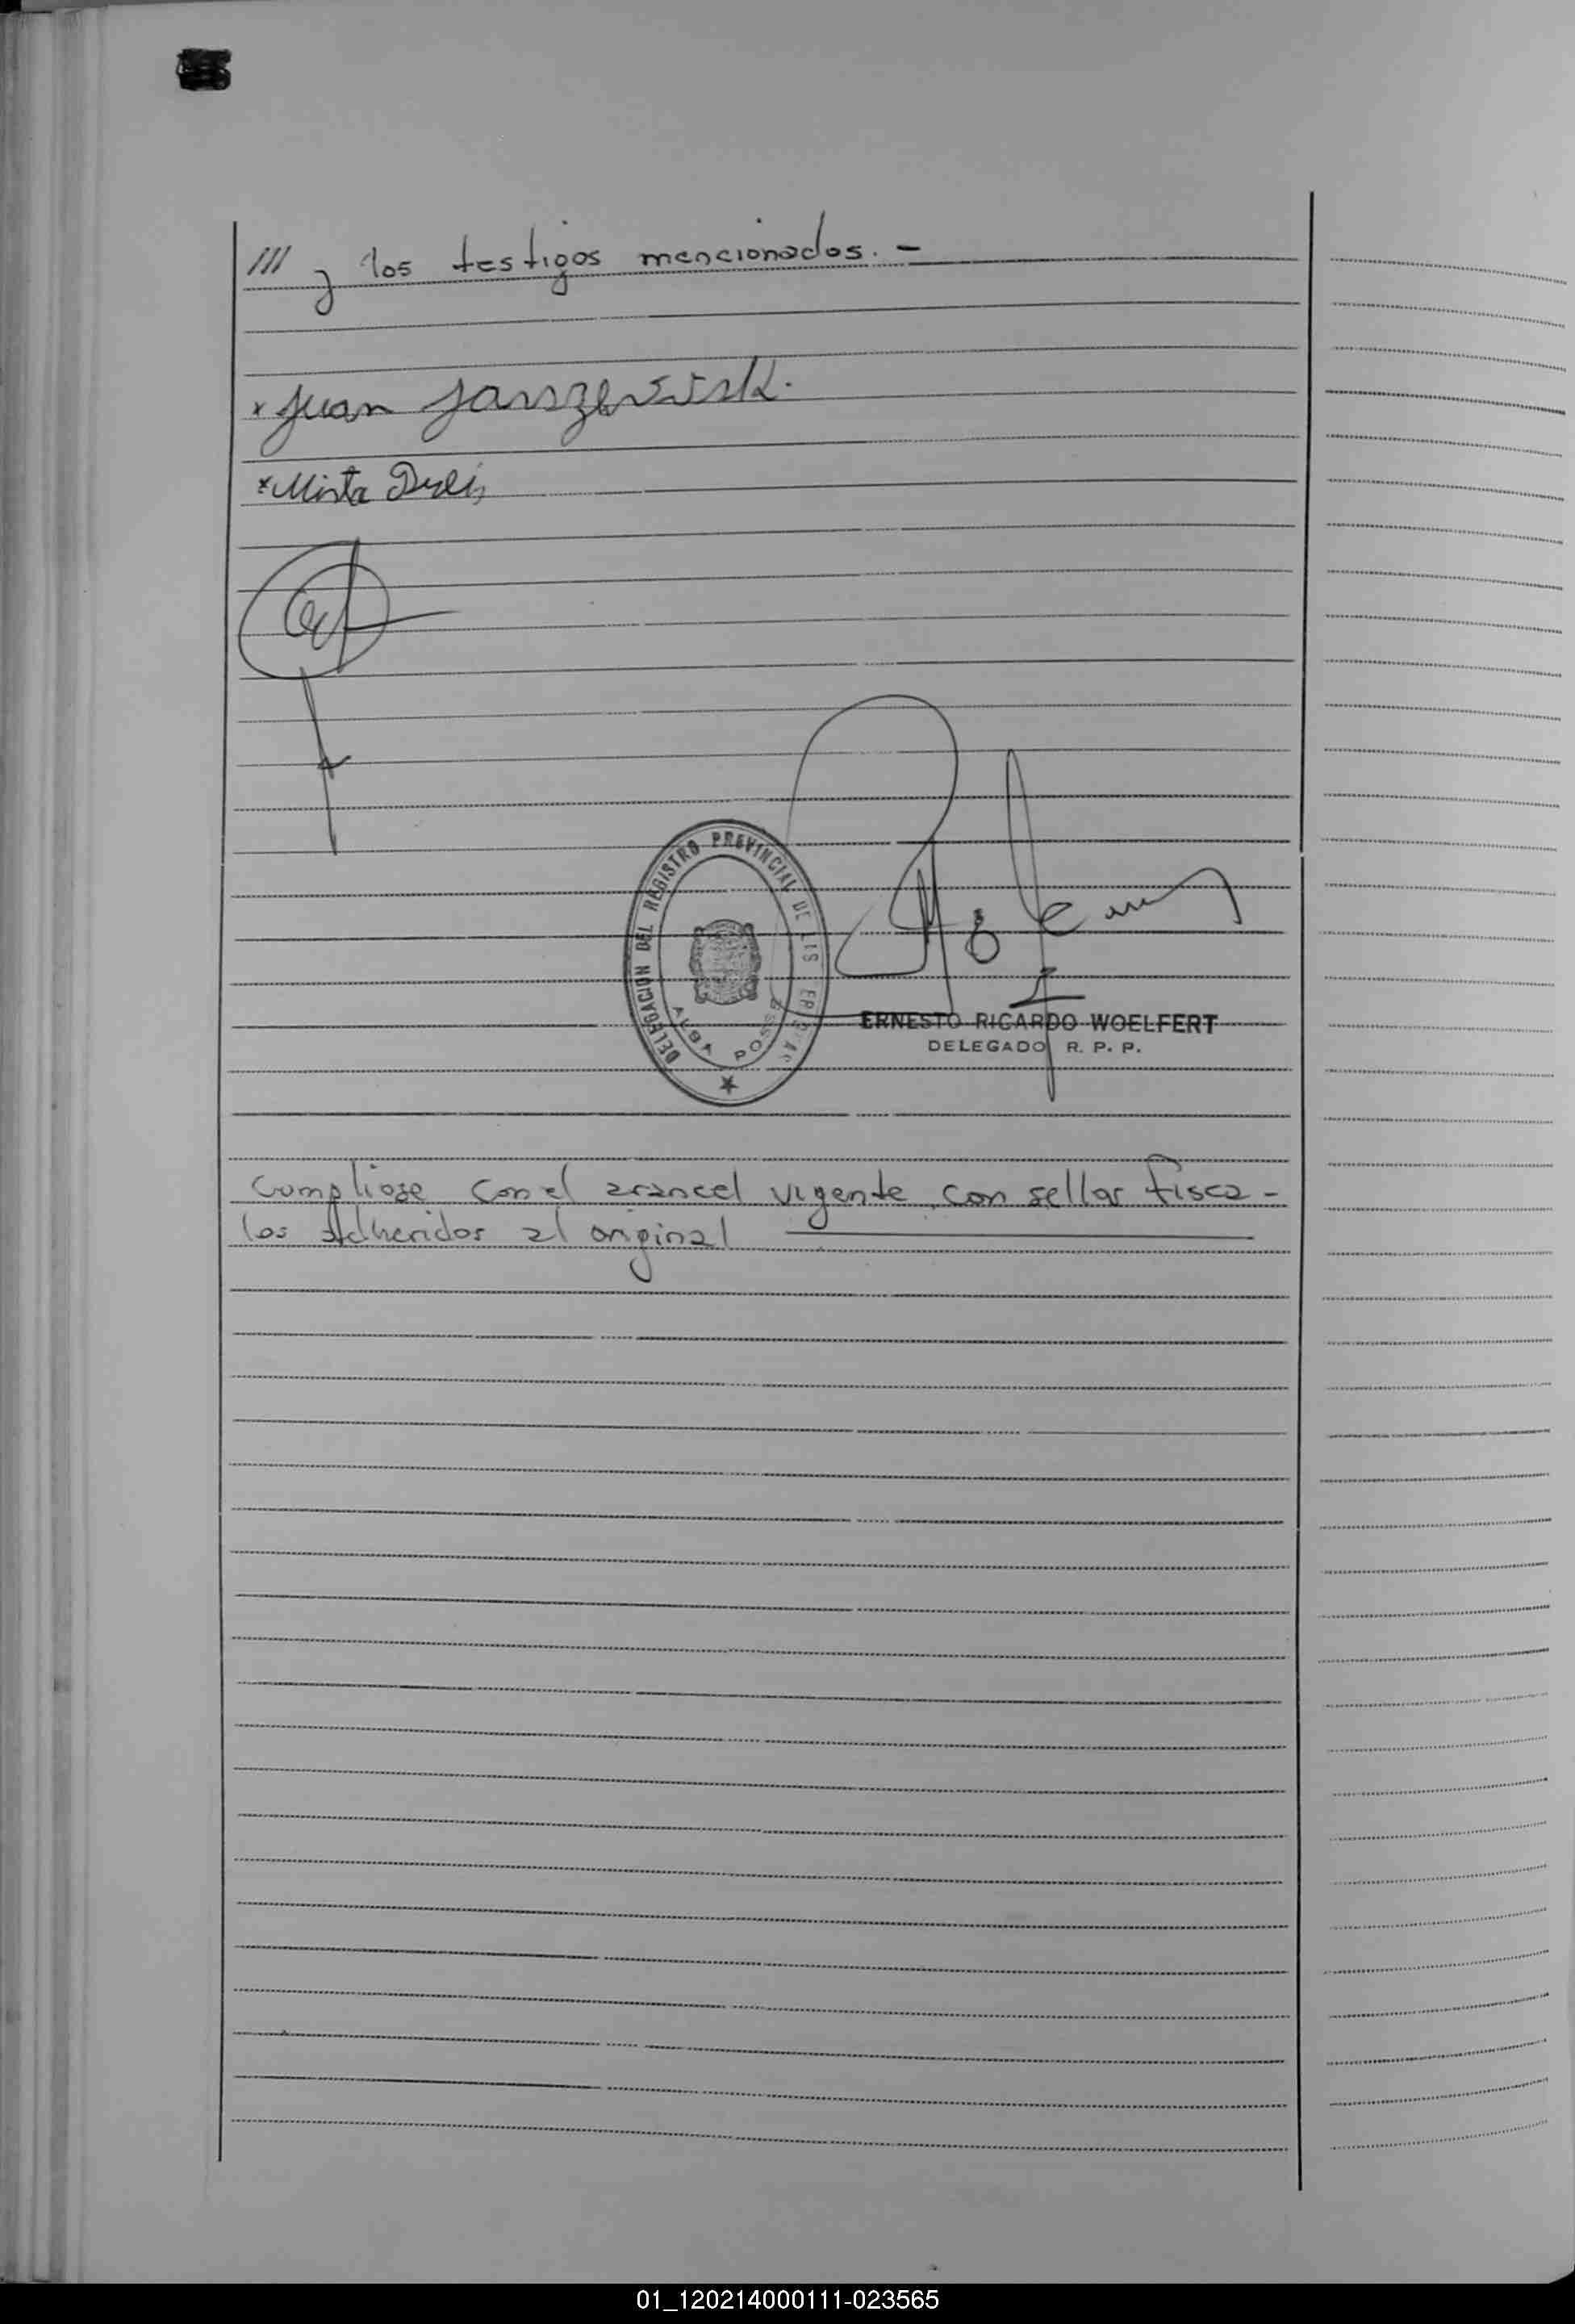 /// y los testigos mencionados. -
* Juan Jarszewski.
* Mirta
DELEGACION DEL REGISTRO PROVINCIAL DE LAS PERSONAS
ALBA POSSE
ERNESTO RICARDO WOELFERT
DELEGADO R. P. P.
Cumpliose con el arancel vigente, con sellos fisca-
les adheridos al original
01_120214000111-023565